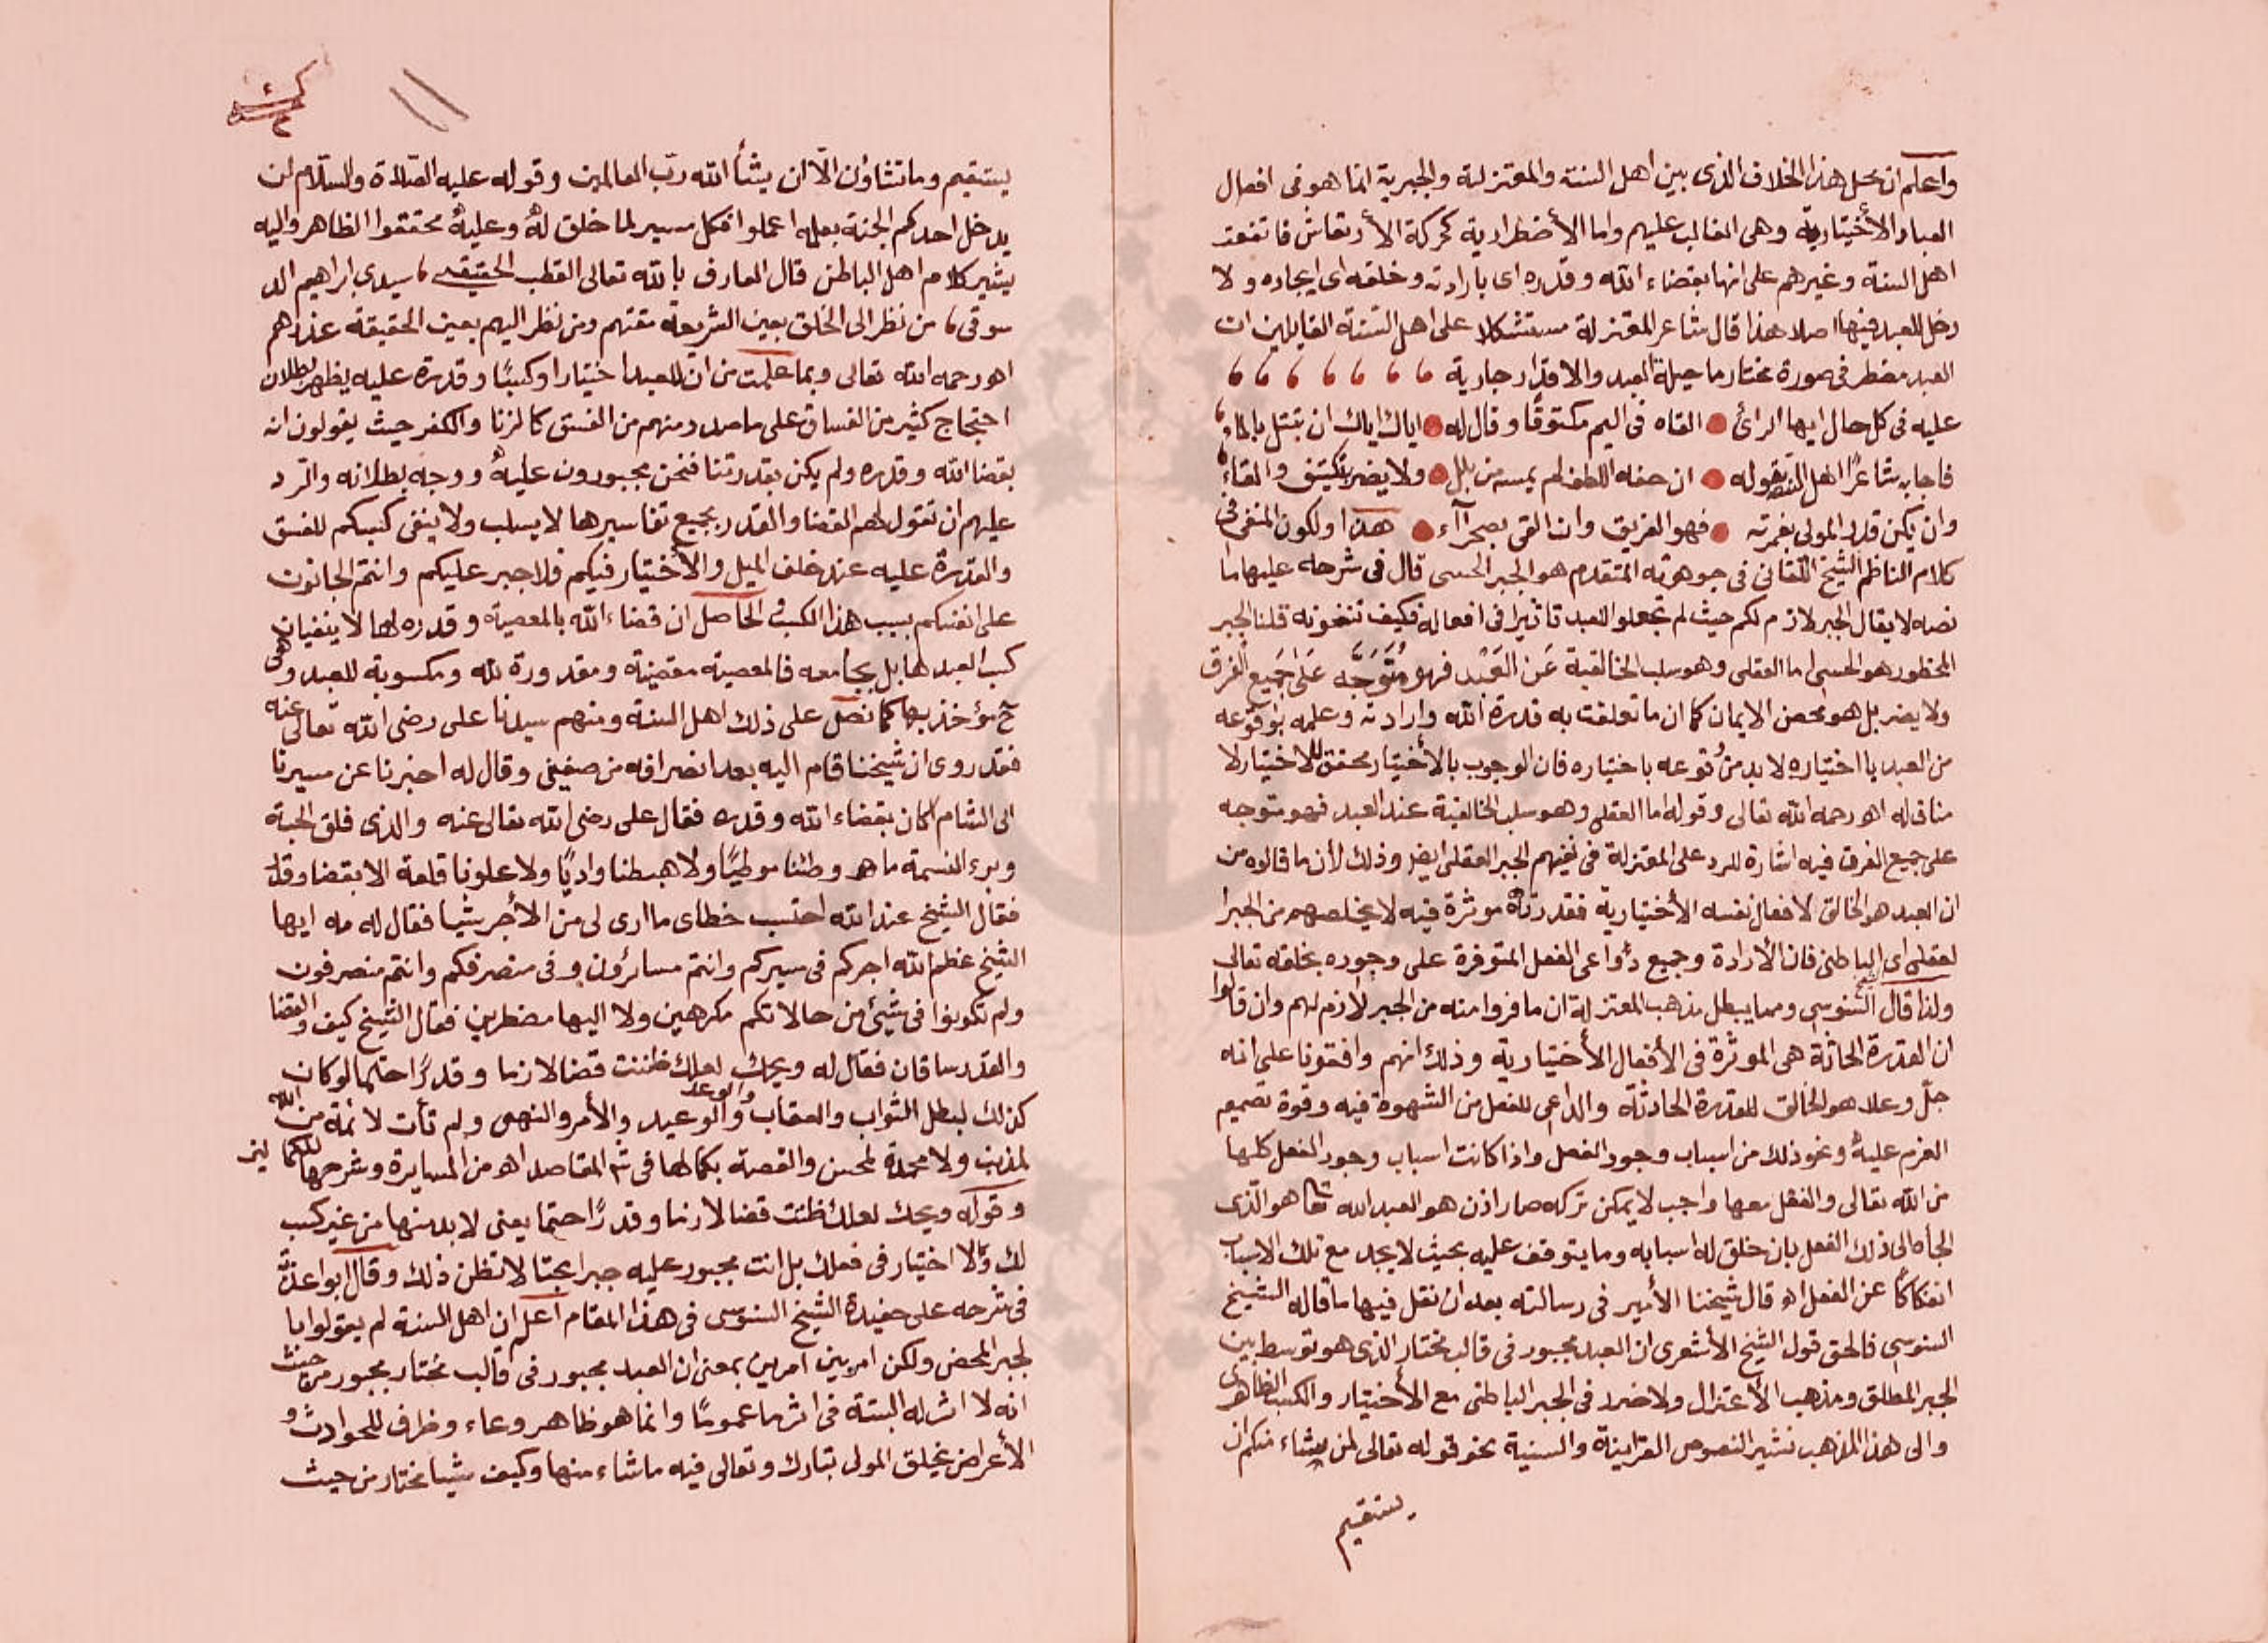 واعلم ان محل هذا الخلاف الذى بين اهل السنة والمعتزلة والجبرية انما هو فى افعال
العباد الأختيارية وهى الغالب عليهم واما الأضطرارية كحركة الأرتعاش فاتفقت
اهل السنة وغيرهم على انها بقضاء الله وقدره اى بارادته وخلقه اى ايجاده ولا
دخل للعبد فيها اصلا هذا قال شاعر المعتزلة مستشكلا على اهل السنة القايلين ان
العبد مضطر فى صورة مختار ما حيلة العبد والاقدار جارية
عليه فى كل حال ايها الرائ القاه فى اليم مكتوفًا وقال له اياك اياك ان تبتل بالماء
فاجابه شاعر اهل السنة بقوله ان حفه اللطف لم يمسه من بلل ولا يضر بتكتيف والقاء
وان يكن قدر المولى بغرقته فهو الغريق وان القى بصحرآاء هذا ولكون المنفى فى
كلام الناظم الشيخ اللقانى فى جوهرته المتقدم هو الجبر الحسى قال فى شرحه عليها ما
نصه لا يقال الجبر لازم لكم حيث لم تجعلو للعبد تاثيرا فى افعاله فكيف تنفونه قلنا الجبر
المحظور هو الحسى اما العقلى وهو سلب الخالقية عَن العَبْد فهو مُتَوَجَّه عَلَى جَمِيع الفرق
ولا يضر بل هو محض الايمان كما ان ما تعلقت به قدرة الله وارادته وعلمه بوقوعه
من العبد باختياره لا بد من وقوعه باختياره فان الوجوب بالأختيار محقق للاختيار لا
مناف له اهـ رحمه الله تعالى وقوله اما العقلى وهو سلب الخالقية عند العبد فهو متوجه
على جميع الفرق فيه اشارة للرد على المعتزلة فى نفيهم الجبر العقلى ايضا وذلك لأن ما قالوه من
ان العبد هو الخالق لافعال نفسه الأختيارية فقدرته موثرة فيه لا يخلصهم من الجبر ا
لعقلى اى الباطنى فان الأرادة وجميع دواعى الفعل المتوفرة على وجوده بخلقه تعالى
ولذا قال الشيخ السنوسى ومما يبطل مذهب المعتزلة ان ما فروا منه من الجبر لازم لهم وان قالوا
ان القدرة الحادثة هى الموثرة فى الأفعال الأختيارية وذلك انهم وافقونا على انه
جلّ وعلا هو الخالق للقدرة الحادثة والداعى للفعل من الشهوة فيه وقوة تصميم
العزم عليه ونحو ذلك من اسباب وجود الفعل واذا كانت اسباب وجود الفعل كلها
من الله تعالى والفعل معها واجب لا يمكن تركه صار اذن هو العبد الله تعا هو الّذى
الجأه الى ذلك الفعل بان خلق له اسبابه وما يتوقف عليه بحيث لا يجد مع تلك الاسباب
انفكاكًا عن الفعل اهـ قال شيخنا الأمير فى رسالته بعد ان نقل فيها ما قاله الشيخ
السنوسى فالحق قول الشيخ الأشعرى ان العبد مجبور فى قالب مختار الذى هو توسط بين
الجبر المطلق ومذهب الأعتزال ولا ضرر فى الجبر الباطنى مع الأختيار والكسب الظاهرى
والى هذا المذهب تشير النصوص القرآينة والسنية نحو قوله تعالى لمن يشاء منكم ان
يستقيم
يستقيم وما تشاؤن الّا ان يشأ الله ربّ العالمين وقوله عليه الصّلاة والسّلام لن
يدخل احدكم الجنة بعمله اعملوا فكل ميسر لما خلق له وعليه محققوا الظاهر واليه
يشير كلام اهل الباطن قال العارف بالله تعالى القطب الحقيقى سيدى ابراهيم الد
سوقى من نظر الى الخلق بعين الشريعة مقتهم ومن نظر اليهم بعين الحقيقة عذرهم
اهـ رحمه الله تعالى وبما علمت من ان للعبد اختيارا وكسبًا وقدرة عليه يظهر بطلان
احتجاج كثير من الفساق على ما صدر منهم من الفسق كالزنا والكفر حيث يقولون انه
بقضا الله وقدره ولم يكن بقدرتنا فنحن مجبورون عليه ووجه بطلانه والرّد
عليهم ان نقول لهم القضا والقدر بجميع تفاسيرها لا يسلب ولا ينفى كسبكم للفسق
والقدرة عليه عند خلق الميل والأختيار فيكم فلا جبر عليكم وانتم الجانون
على انفسكم بسبب هذا الكسب والحاصل ان قضاء الله بالمعصية وقدره لها لا ينفيان
كسب العبد لها بل بجامعه فالمعصية مقضية ومقدورة لله ومكسوبة للعبد وهى
ح مؤخذ بها كما نص على ذلك اهل السنة ومنهم سيدنا على رضى الله تعالى عنه
فقد روى ان شيخنا قام اليه بعد انصرافه من صفين وقال له اخبرنا عن مسيرنا
الى الشام اكان بقضاء الله وقدره فقال على رضى الله تعالى عنه والذى فلق الحبة
وبرء النسمة ما هو وطئنا موطيًا ولا هبطنا واديًا ولا علونا قلعة الا بقضا وقدر
فقال الشيخ عند الله احتسب خطاى ما ارى لى من الأجر شيا فقال له مه ايها
الشيخ عظم الله اجركم فى سيركم وانتم سائرون وفى منصرفكم وانتم منصرفون
ولم تكونوا فى شيئ من حالاتكم مكرهين ولا اليها مضطرين فقال الشيخ كيف والقضا
والقدر ساقان فقال له ويحك لعلك ظننت قضا لازما وقدرًا حتما لو كان
كذلك لبطل الثواب والعقاب والوعد والوعيد والأمر والنهى ولم تأت لائمة من الله
لمذنب ولا محمدة لمحسن والقصة بكمالها فى شرح المقاصد اهـ من المسايرة وشرحها للكما
وقوله ويحك لعلك ظننت قضا لازما وقدرًا حتما يعنى لا بد منها من غير كسب
لك ولا اختيار فى فعلك بل انت مجبور عليه جبرا بحتا لا تظن ذلك وقال ابو اعذبة
فى شرحه على حفيدة الشيخ السنوسى فى هذا المقام اعلم ان اهل السنة لم يقولوا با
لجبر المحض ولكن امر بين امرين بمعنى ان العبد مجبور فى قالب مختار مجبور من حيث
انه لا اثر له البتة فى اثر ما عموما وانما هو ظاهر وعاء وظرف للحوادث و
الأعراض يخلق المولى تبارك وتعالى فيه ما شاء منها وكيف شيا مختار من حيث